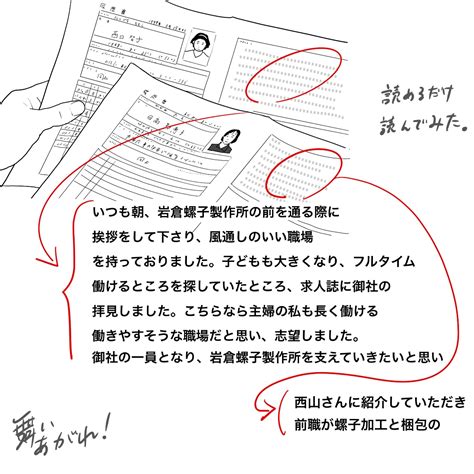 履歴書
履歴書
読めるだけ
読んでみた。
いつも朝、岩倉螺子製作所の前を通る際に
挨拶をして下さり、風通しのいい職場
を持っておりました。子どもも大きくなり、フルタイム
働けるところを探していたところ、求人誌に御社の
拝見しました。こちらなら主婦の私も長く働ける
働きやすそうな職場だと思い、志望しました。
御社の一員となり、岩倉螺子製作所を支えていきたいと思い
西山さんに紹介していただき
前職が螺子加工と梱包の
舞い
あがれ!